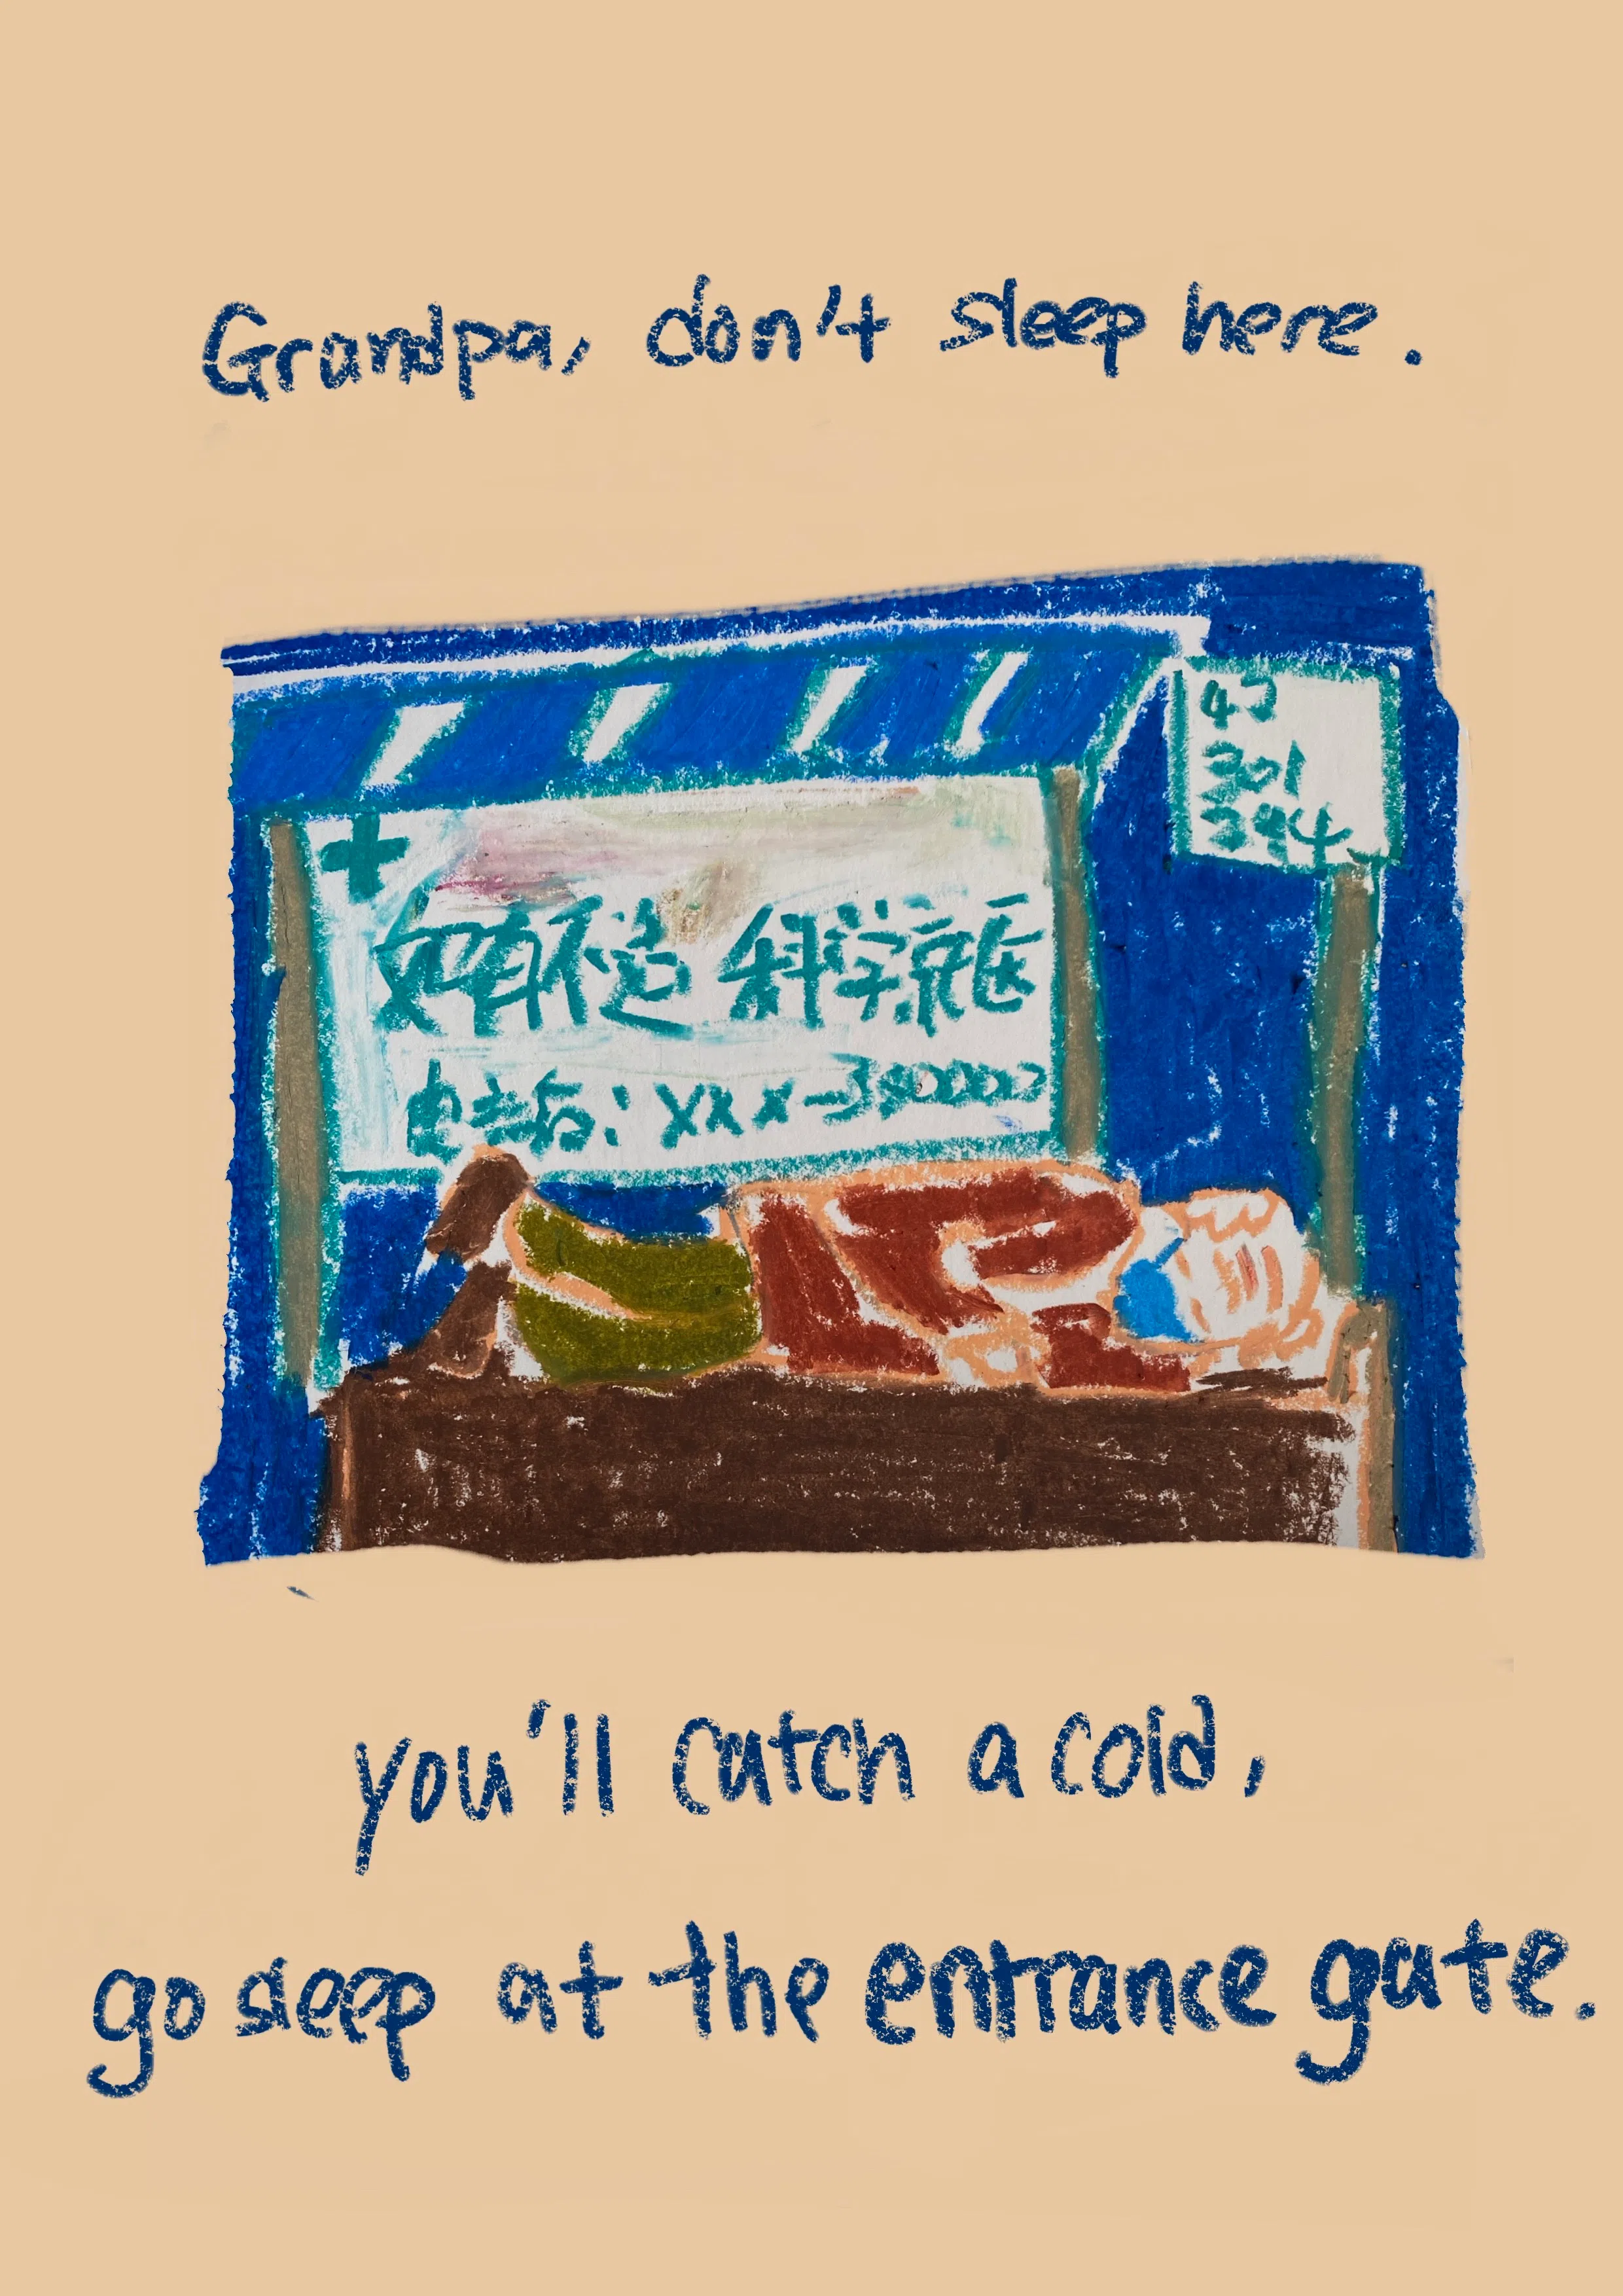 Grandpa, don't sleep here.
47
301
394
如有不适 科学就医
电话: XXX-380000
you'll catch a cold,
go sleep at the entrance gate.